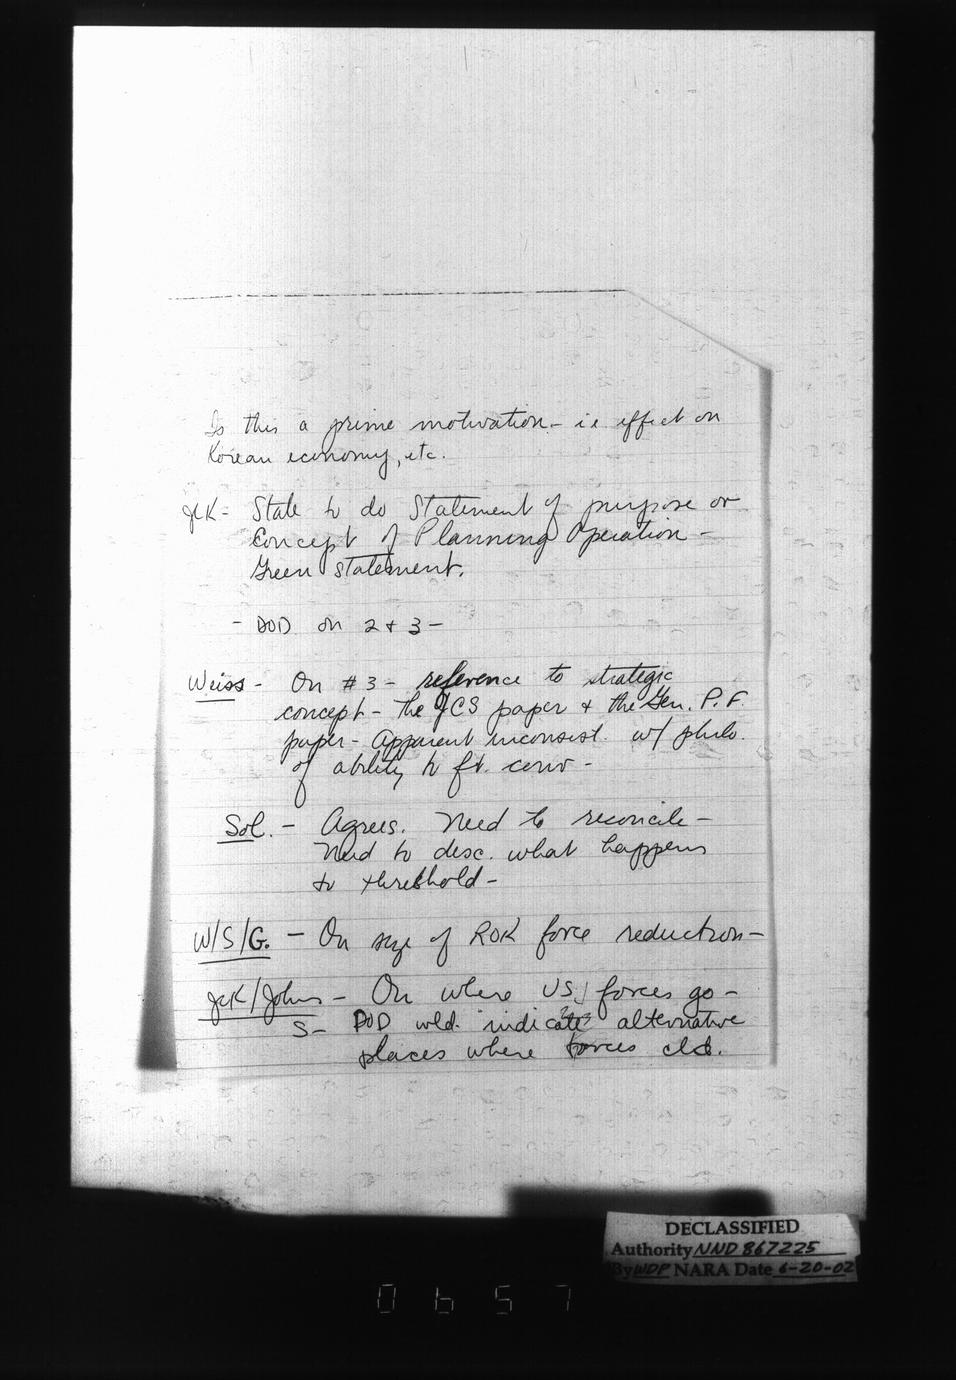 Is this a prime motivation - i.e effect on
Korean economy, etc.
JCK - State to do Statement of purpose or
Concept of Planning Operation -
Green statement.
- DOD on 2 & 3 -
Weiss - On #3 - reference to strategic
concept - the JCS paper & the Gen. P. F.
paper - Apparent inconsist. w/ philo.
of ability to ft. conv -
Sol. - Agrees. Need to reconcile -
Need to desc. what happens
to threshold -
W/S/G. - On size of ROK force reduction -
JCK/Johns - On where US forces go -
S - DOD wld. indicate alternative
places where forces cld.
DECLASSIFIED
Authority NND 867225
By WDP NARA Date 6-20-02
0657